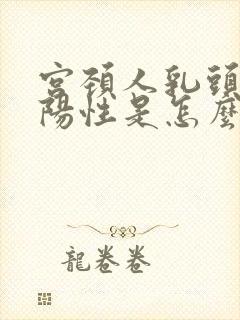 宮頸人乳頭
陽性是怎麼
龍卷卷